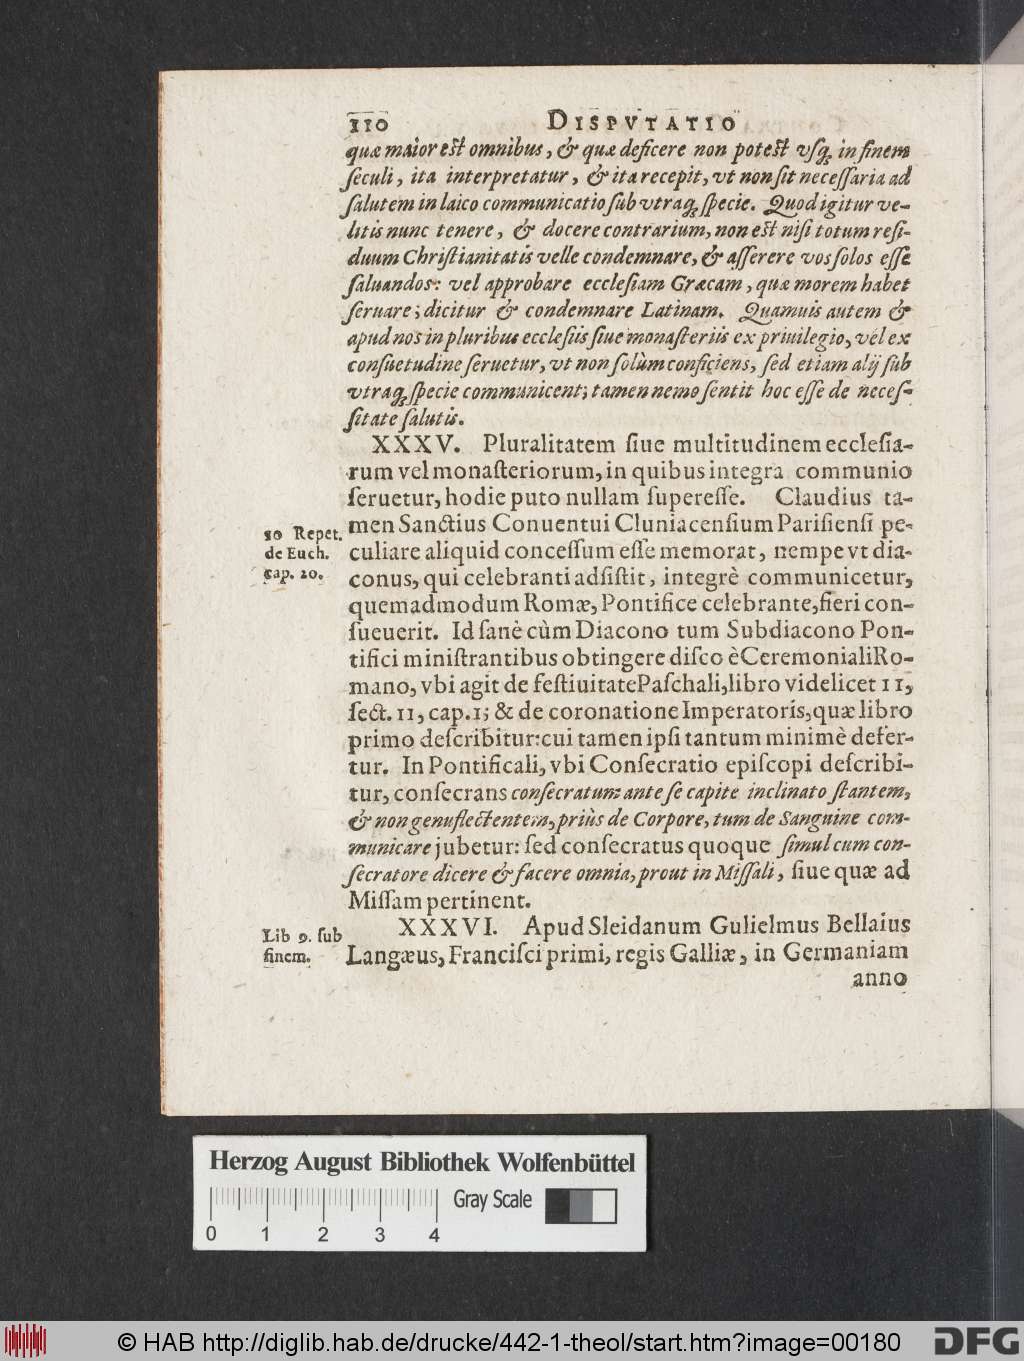 110 DISPVTATIO
quæ maior est omnibus, & quæ deficere non potest vsq; in finem
seculi, ita interpretatur, & ita recepit, vt non sit necessaria ad
salutem in laico communicatio sub vtraq; specie. Quod igitur ve-
litis nunc tenere, & docere contrarium, non est nisi totum resi-
duum Christianitatis velle condemnare, & asserere vos solos esse
saluandos: vel approbare ecclesiam Græcam, quæ morem habet
seruare; dicitur & condemnare Latinam. Quamuis autem &
apud nos in pluribus ecclesiis siue monasteriis ex priuilegio, vel ex
consuetudine seruetur, vt non solùm conficiens, sed etiam alij sub
vtraq; specie communicent; tamen nemo sentit hoc esse de neces-
sitate salutis.
XXXV. Pluralitatem siue multitudinem ecclesia-
rum vel monasteriorum, in quibus integra communio
seruetur, hodie puto nullam superesse. Claudius ta-
men Sanctius Conuentui Cluniacensium Parisiensi pe-
culiare aliquid concessum esse memorat, nempe vt dia-
conus, qui celebranti adsistit, integrè communicetur,
quemadmodum Romæ, Pontifice celebrante, fieri con-
sueuerit. Id sanè cùm Diacono tum Subdiacono Pon-
tifici ministrantibus obtingere disco è Ceremoniali Ro-
mano, vbi agit de festiuitate Paschali, libro videlicet 11,
sect. 11, cap. 1; & de coronatione Imperatoris, quæ libro
primo describitur: cui tamen ipsi tantum minimè defer-
tur. In Pontificali, vbi Consecratio episcopi describi-
tur, consecrans consecratum ante se capite inclinato stantem,
& non genuflectentem, priùs de Corpore, tum de Sanguine com-
municare jubetur: sed consecratus quoque simul cum con-
secratore dicere & facere omnia, prout in Missali, siue quæ ad
Missam pertinent.
XXXVI. Apud Sleidanum Gulielmus Bellaius
Langæus, Francisci primi, regis Galliæ, in Germaniam
anno
10 Repet.
de Euch.
cap. 20.
Lib 9. sub
finem.
Herzog August Bibliothek Wolfenbüttel
Gray Scale
0 1 2 3 4
© HAB http://diglib.hab.de/drucke/442-1-theol/start.htm?image=00180
DFG